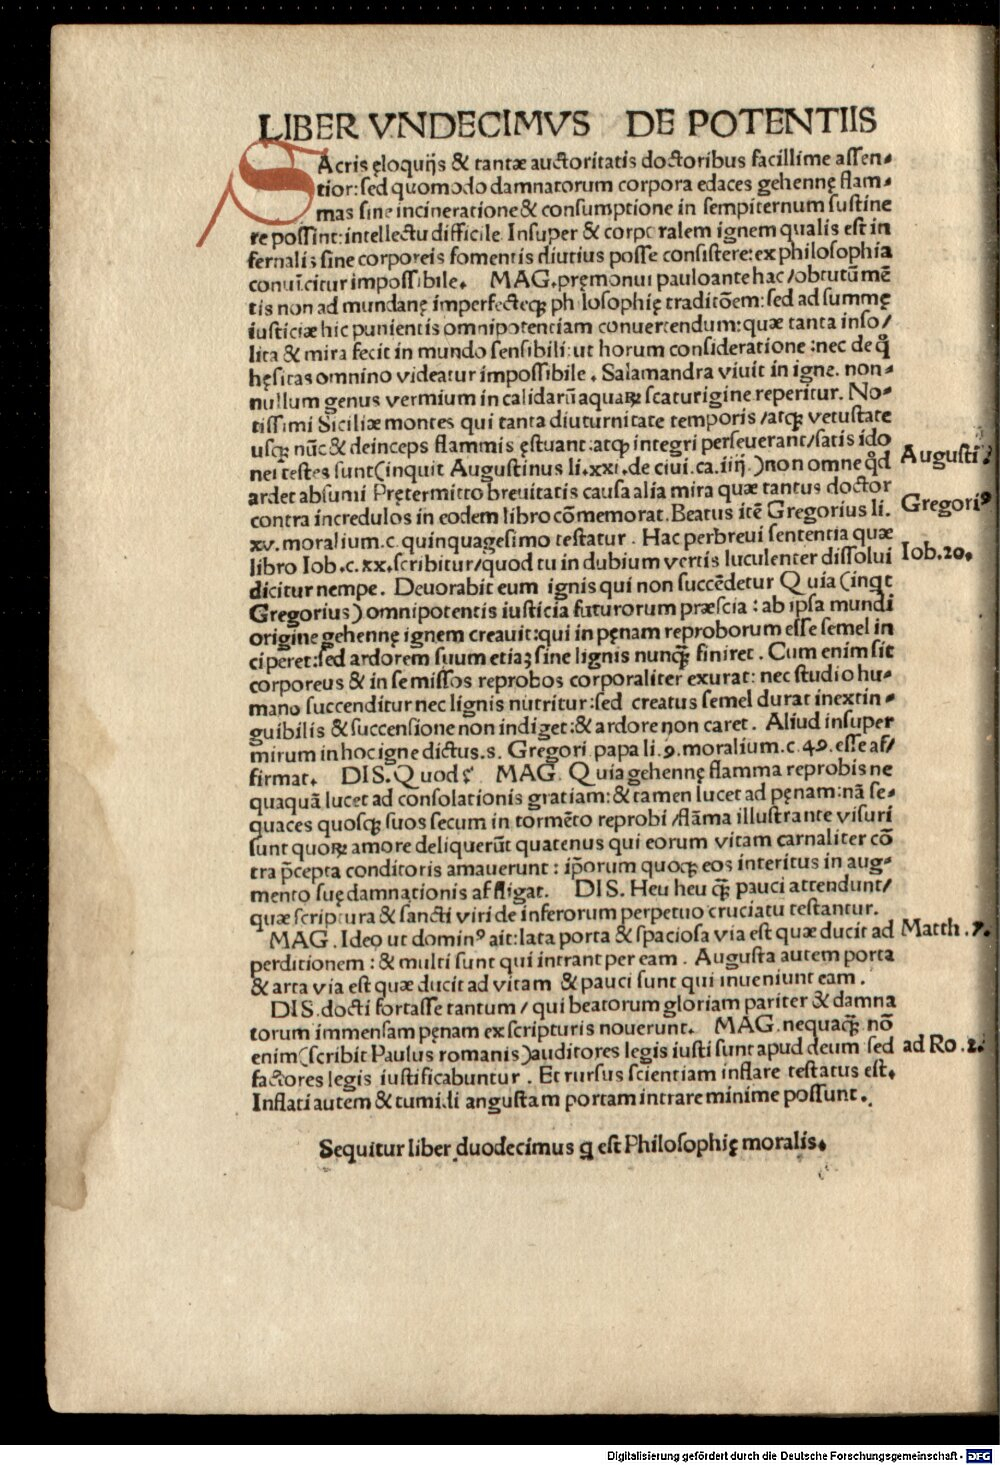 LIBER VNDECIMVS DE POTENTIIS
SAcris ęloquijs & tantæ auctoritatis doctoribus facillime assen-
tior: sed quomodo damnatorum corpora edaces gehennę flam-
mas sine incineratione & consumptione in sempiternum sustine
re possint: intellectu difficile Insuper & corporalem ignem qualis est in
fernalis sine corporeis fomentis diutius posse consistere: ex philosophia
conuīcitur impossibile. MAG. pręmonui pauloante hac/obtutū mē
tis non ad mundanę imperfecteqꝫ philosophię traditōem: sed ad summę
iusticiæ hic punientis omnipotentiam conuertendum: quæ tanta inso/
lita & mira fecit in mundo sensibili: ut horum consideratione: nec de qͦ
hęsitas omnino videatur impossibile. Salamandra viuit in igne. non-
nullum genus vermium in calidarū aquaꝝ scaturigine reperitur. No-
tissimi Siciliæ montes qui tanta diuturnitate temporis/atqꝫ vetustate
usqꝫ nūc & deinceps flammis ęstuant: atqꝫ integri perseuerant/satis ido
nei testes sunt (inquit Augustinus li.xxi.de ciui.ca.iiij.) non omne qͦd
Augusti⁹
ardet absumi Prętermitto breuitatis causa alia mira quæ tantus doctor
contra incredulos in eodem libro cōmemorat. Beatus itē Gregorius li.
Gregori⁹
xv. moralium.c.quinquagesimo testatur. Hac perbreui sententia quæ
libro Iob.c.xx.scribitur/quod tu in dubium vertis luculenter dissolui
Iob.20.
dicitur nempe. Deuorabit eum ignis qui non succēdetur Quia (inqt
Gregorius) omnipotentis iusticia futurorum præscia: ab ipsa mundi
origine gehennę ignem creauit: qui in pęnam reproborum esse semel in
ciperet: sed ardorem suum etiaꝫ sine lignis nunqꝫ̄ finiret. Cum enim sit
corporeus & in se missos reprobos corporaliter exurat: nec studio hu-
mano succenditur nec lignis nutritur: sed creatus semel durat inextin-
guibilis & succensione non indiget: & ardore non caret. Aliud insuper
mirum in hoc igne dictus.s. Gregori papa li.9.moralium.c.49.esse af/
firmat. DIS. Quod ę MAG. Quia gehennę flamma reprobis ne
quaquā lucet ad consolationis gratiam: & tamen lucet ad pęnam: nā se-
quaces quosqꝫ suos secum in tormēto reprobi/flāma illustrante visuri
sunt quoꝝ amore deliquerūt quatenus qui eorum vitam carnaliter cō
tra p̄cepta conditoris amauerunt: ip̄orum quoqꝫ eos interitus in aug-
mento suę damnationis affligat. DIS. Heu heu qꝫ̄ pauci attendunt/
quæ scriptura & sancti viri de inferorum perpetuo cruciatu testantur.
MAG. Ideo ut domin⁹ ait: lata porta & spaciosa via est quæ ducit ad
Matth.7.
perditionem: & multi sunt qui intrant per eam. Augusta autem porta
& arta via est quæ ducit ad vitam & pauci sunt qui inueniunt eam.
DIS. docti fortasse tantum/qui beatorum gloriam pariter & damna
torum immensam pęnam ex scripturis nouerunt. MAG. nequaqꝫ̄ nō
enim (scribit Paulus romanis) auditores legis iusti sunt apud deum sed
ad Ro.2.
factores legis iustificabuntur. Et rursus scientiam inflare testatus est.
Inflati autem & tumidi angustam portam intrare minime possunt.
Sequitur liber duodecimus q est Philosophię moralis.
Digitalisierung gefördert durch die Deutsche Forschungsgemeinschaft - DFG